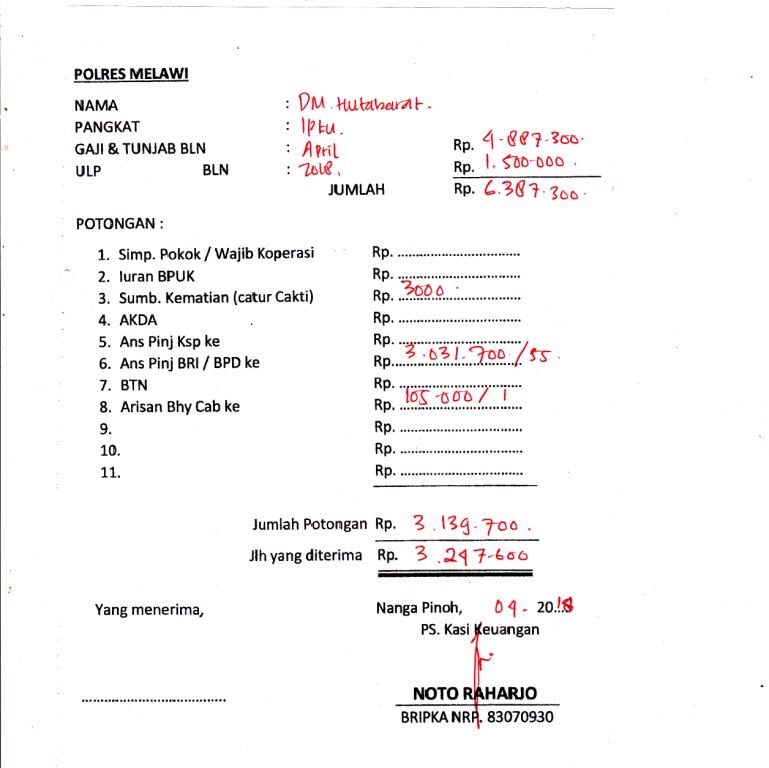 POLRES MELAWI
NAMA : DM. Hutabarat.
PANGKAT : Iptu.
GAJI & TUNJAB BLN : April Rp. 4.887.300.
ULP BLN : 2018. Rp. 1.500.000.
JUMLAH Rp. 6.387.300.
POTONGAN :
1. Simp. Pokok / Wajib Koperasi Rp. ................................
2. Iuran BPUK Rp. ................................
3. Sumb. Kematian (catur Cakti) Rp. 3000.
4. AKDA Rp. ................................
5. Ans Pinj Ksp ke Rp. ................................
6. Ans Pinj BRI / BPD ke Rp. 3.031.700./55.
7. BTN Rp. ................................
8. Arisan Bhy Cab ke Rp. 105.000/1
9. Rp. ................................
10. Rp. ................................
11. Rp. ................................
Jumlah Potongan Rp. 3.139.700.
Jlh yang diterima Rp. 3.247.600
Yang menerima, Nanga Pinoh, 04 - 2018
PS. Kasi Keuangan
NOTO RAHARJO
BRIPKA NRP. 83070930